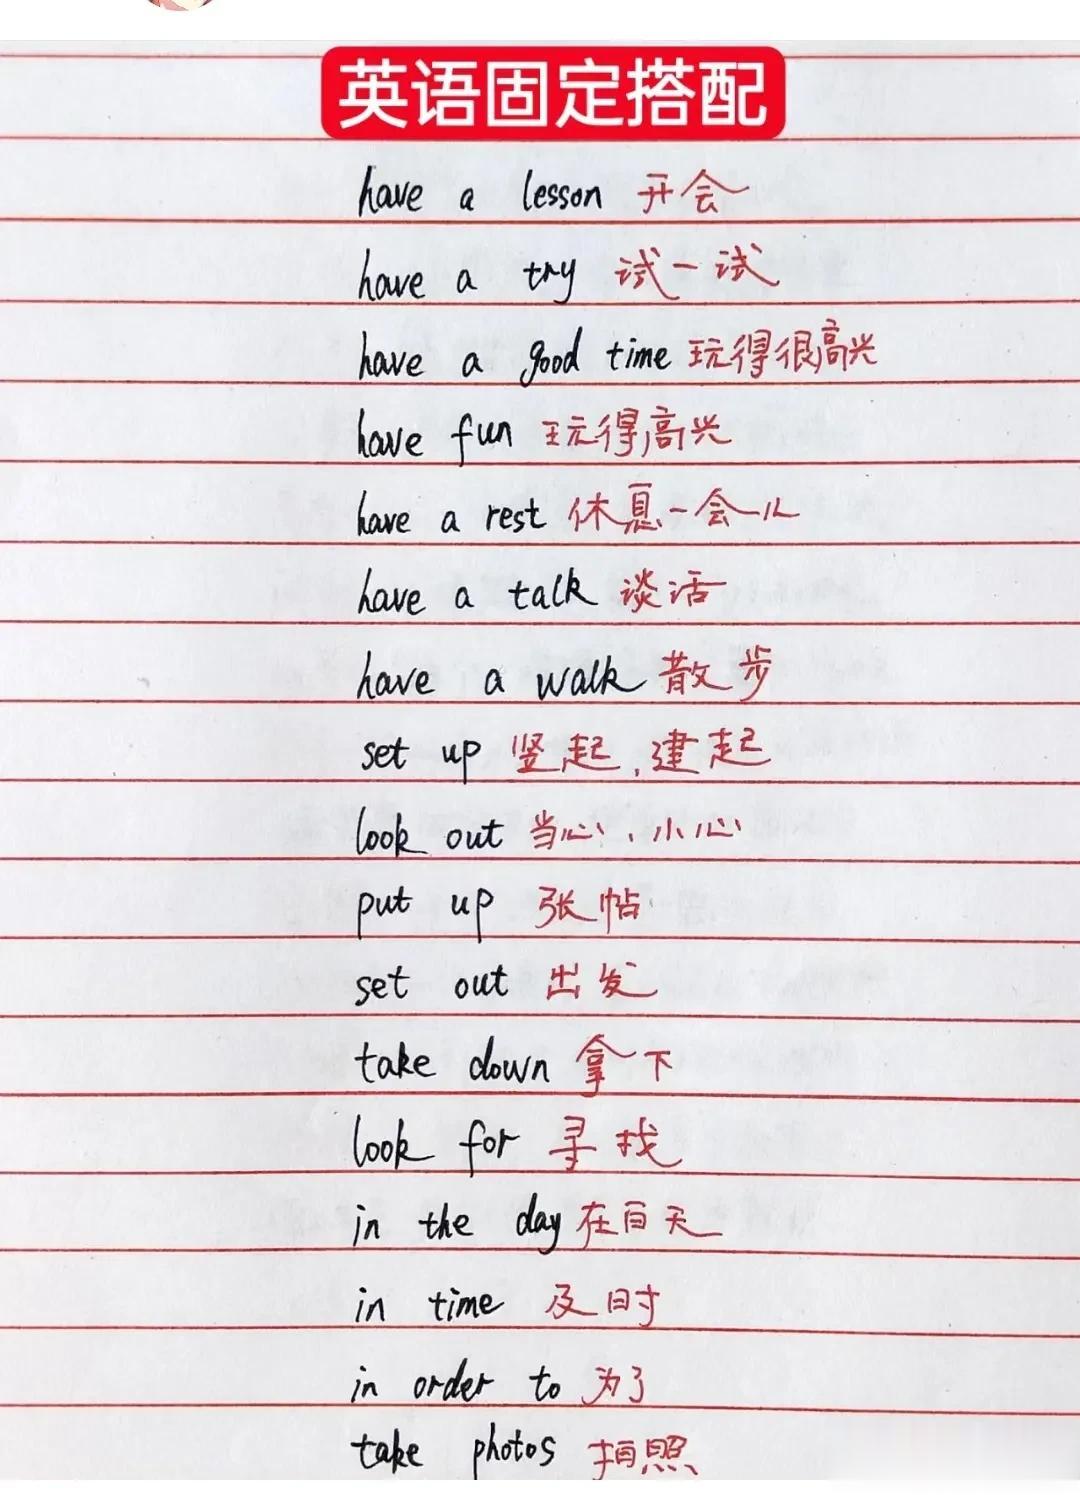 英语固定搭配
have a lesson 开会
have a try 试一试
have a good time 玩得很高兴
have fun 玩得高兴
have a rest 休息一会儿
have a talk 谈话
have a walk 散步
set up 竖起,建起
look out 当心、小心
put up 张帖
set out 出发
take down 拿下
look for 寻找
in the day 在白天
in time 及时
in order to 为了
take photos 拍照